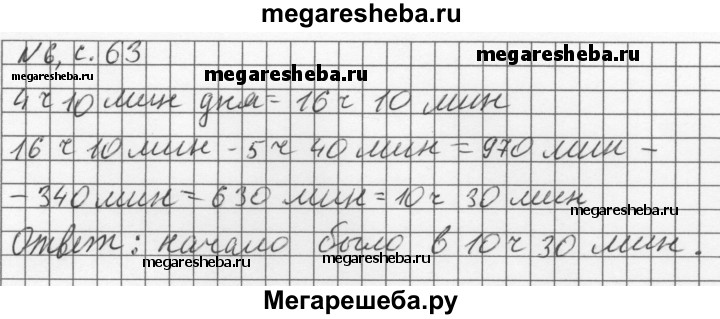 megaresheba.ru
N 6, с. 63
megaresheba.ru
megaresheba.ru
megaresheba.ru
4 ч 10 мин дня = 16 ч 10 мин
16 ч 10 мин - 5 ч 40 мин = 970 мин -
- 340 мин = 630 мин = 10 ч 30 мин
megaresheba.ru
Ответ: начало было в 10 ч 30 мин.
megaresheba.ru
megaresheba.ru
Мегарешеба.ру